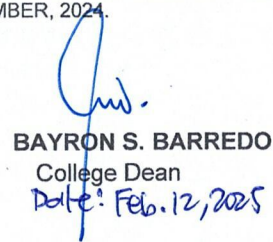 MBER, 2024.
BAYRON S. BARREDO
College Dean
Date: Feb. 12, 2025